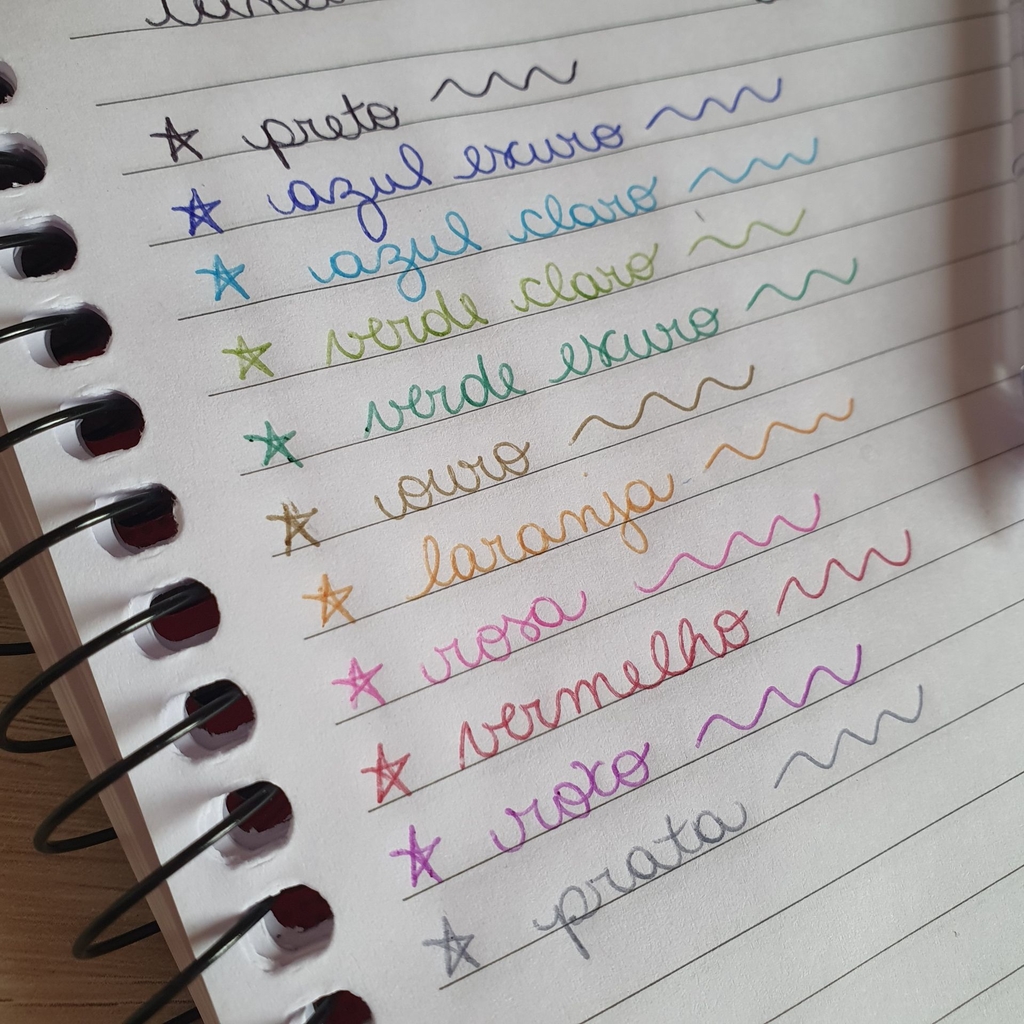 preto
azul escuro
azul claro
verde claro
verde escuro
ouro
laranja
rosa
vermelho
roxo
prata